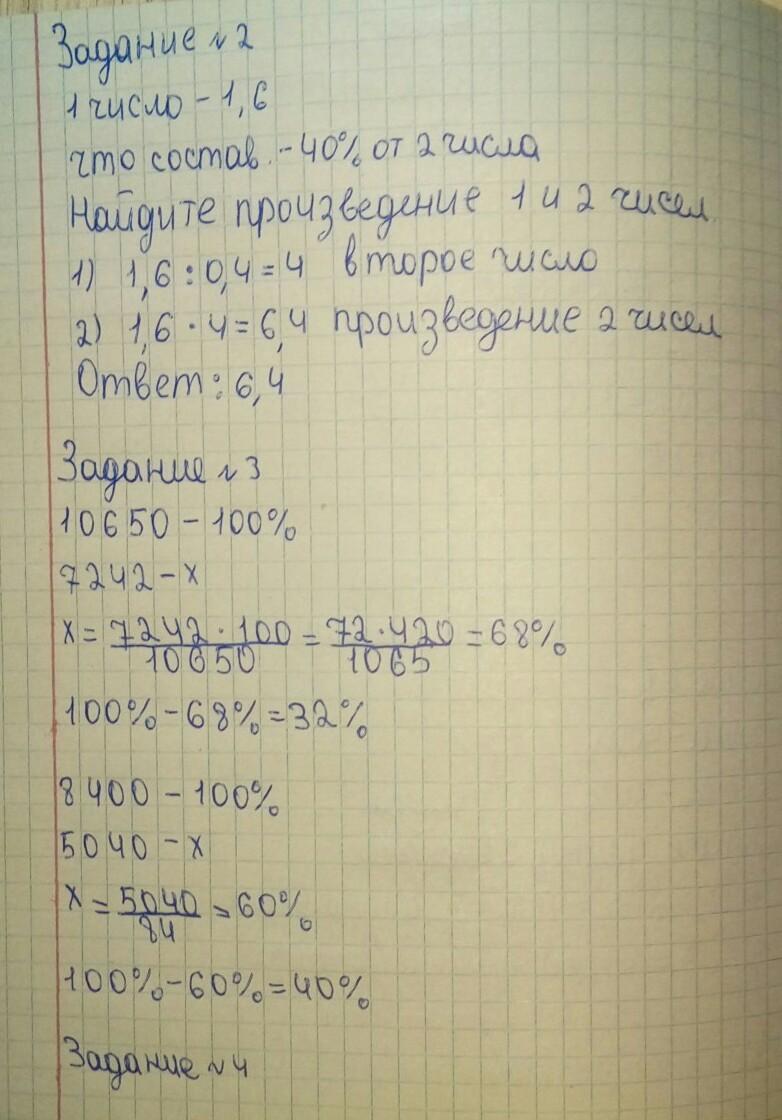 Задание №2
1 число - 1,6
что состав. - 40% от 2 числа
Найдите произведение 1 и 2 чисел.
1) 1,6 : 0,4 = 4 второе число
2) 1,6 · 4 = 6,4 произведение 2 чисел
Ответ: 6,4
Задание №3
10650 - 100%
7242 - x
x = 7242 · 100 / 10650 = 72 · 420 / 1065 = 68%
100% - 68% = 32%
8400 - 100%
5040 - x
x = 5040 / 84 = 60%
100% - 60% = 40%
Задание №4